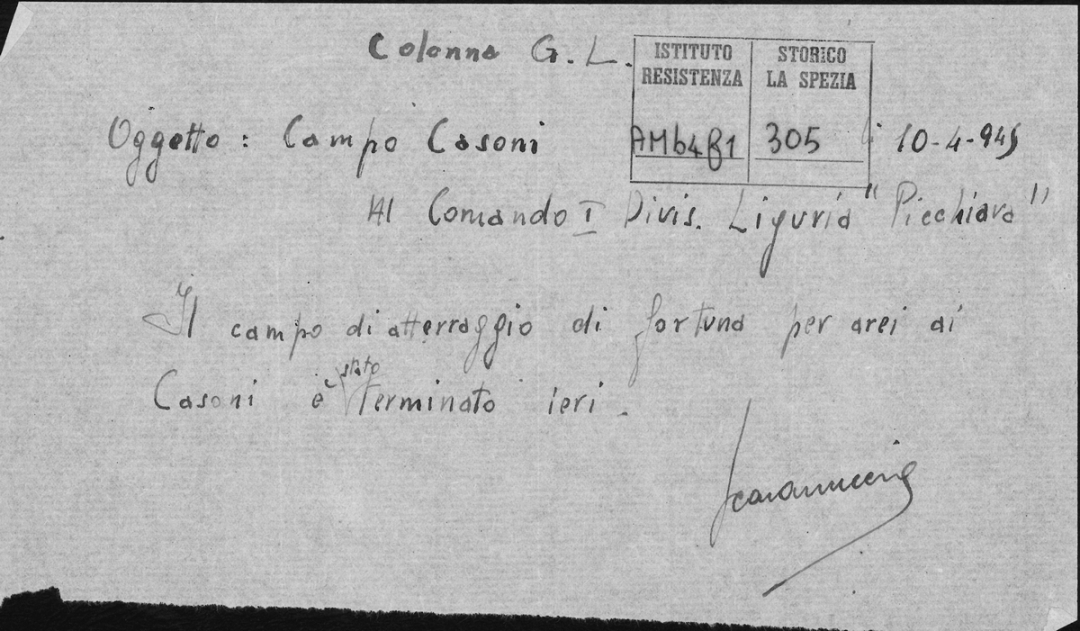 Colonna G. L.
ISTITUTO STORICO
RESISTENZA LA SPEZIA
AMb4β1 305
Oggetto: Campo Casoni lì 10-4-945
Al Comando I Divis. Liguria "Picchiara"
Il campo di atterraggio di fortuna per arei ai
stato
Casoni è terminato ieri.